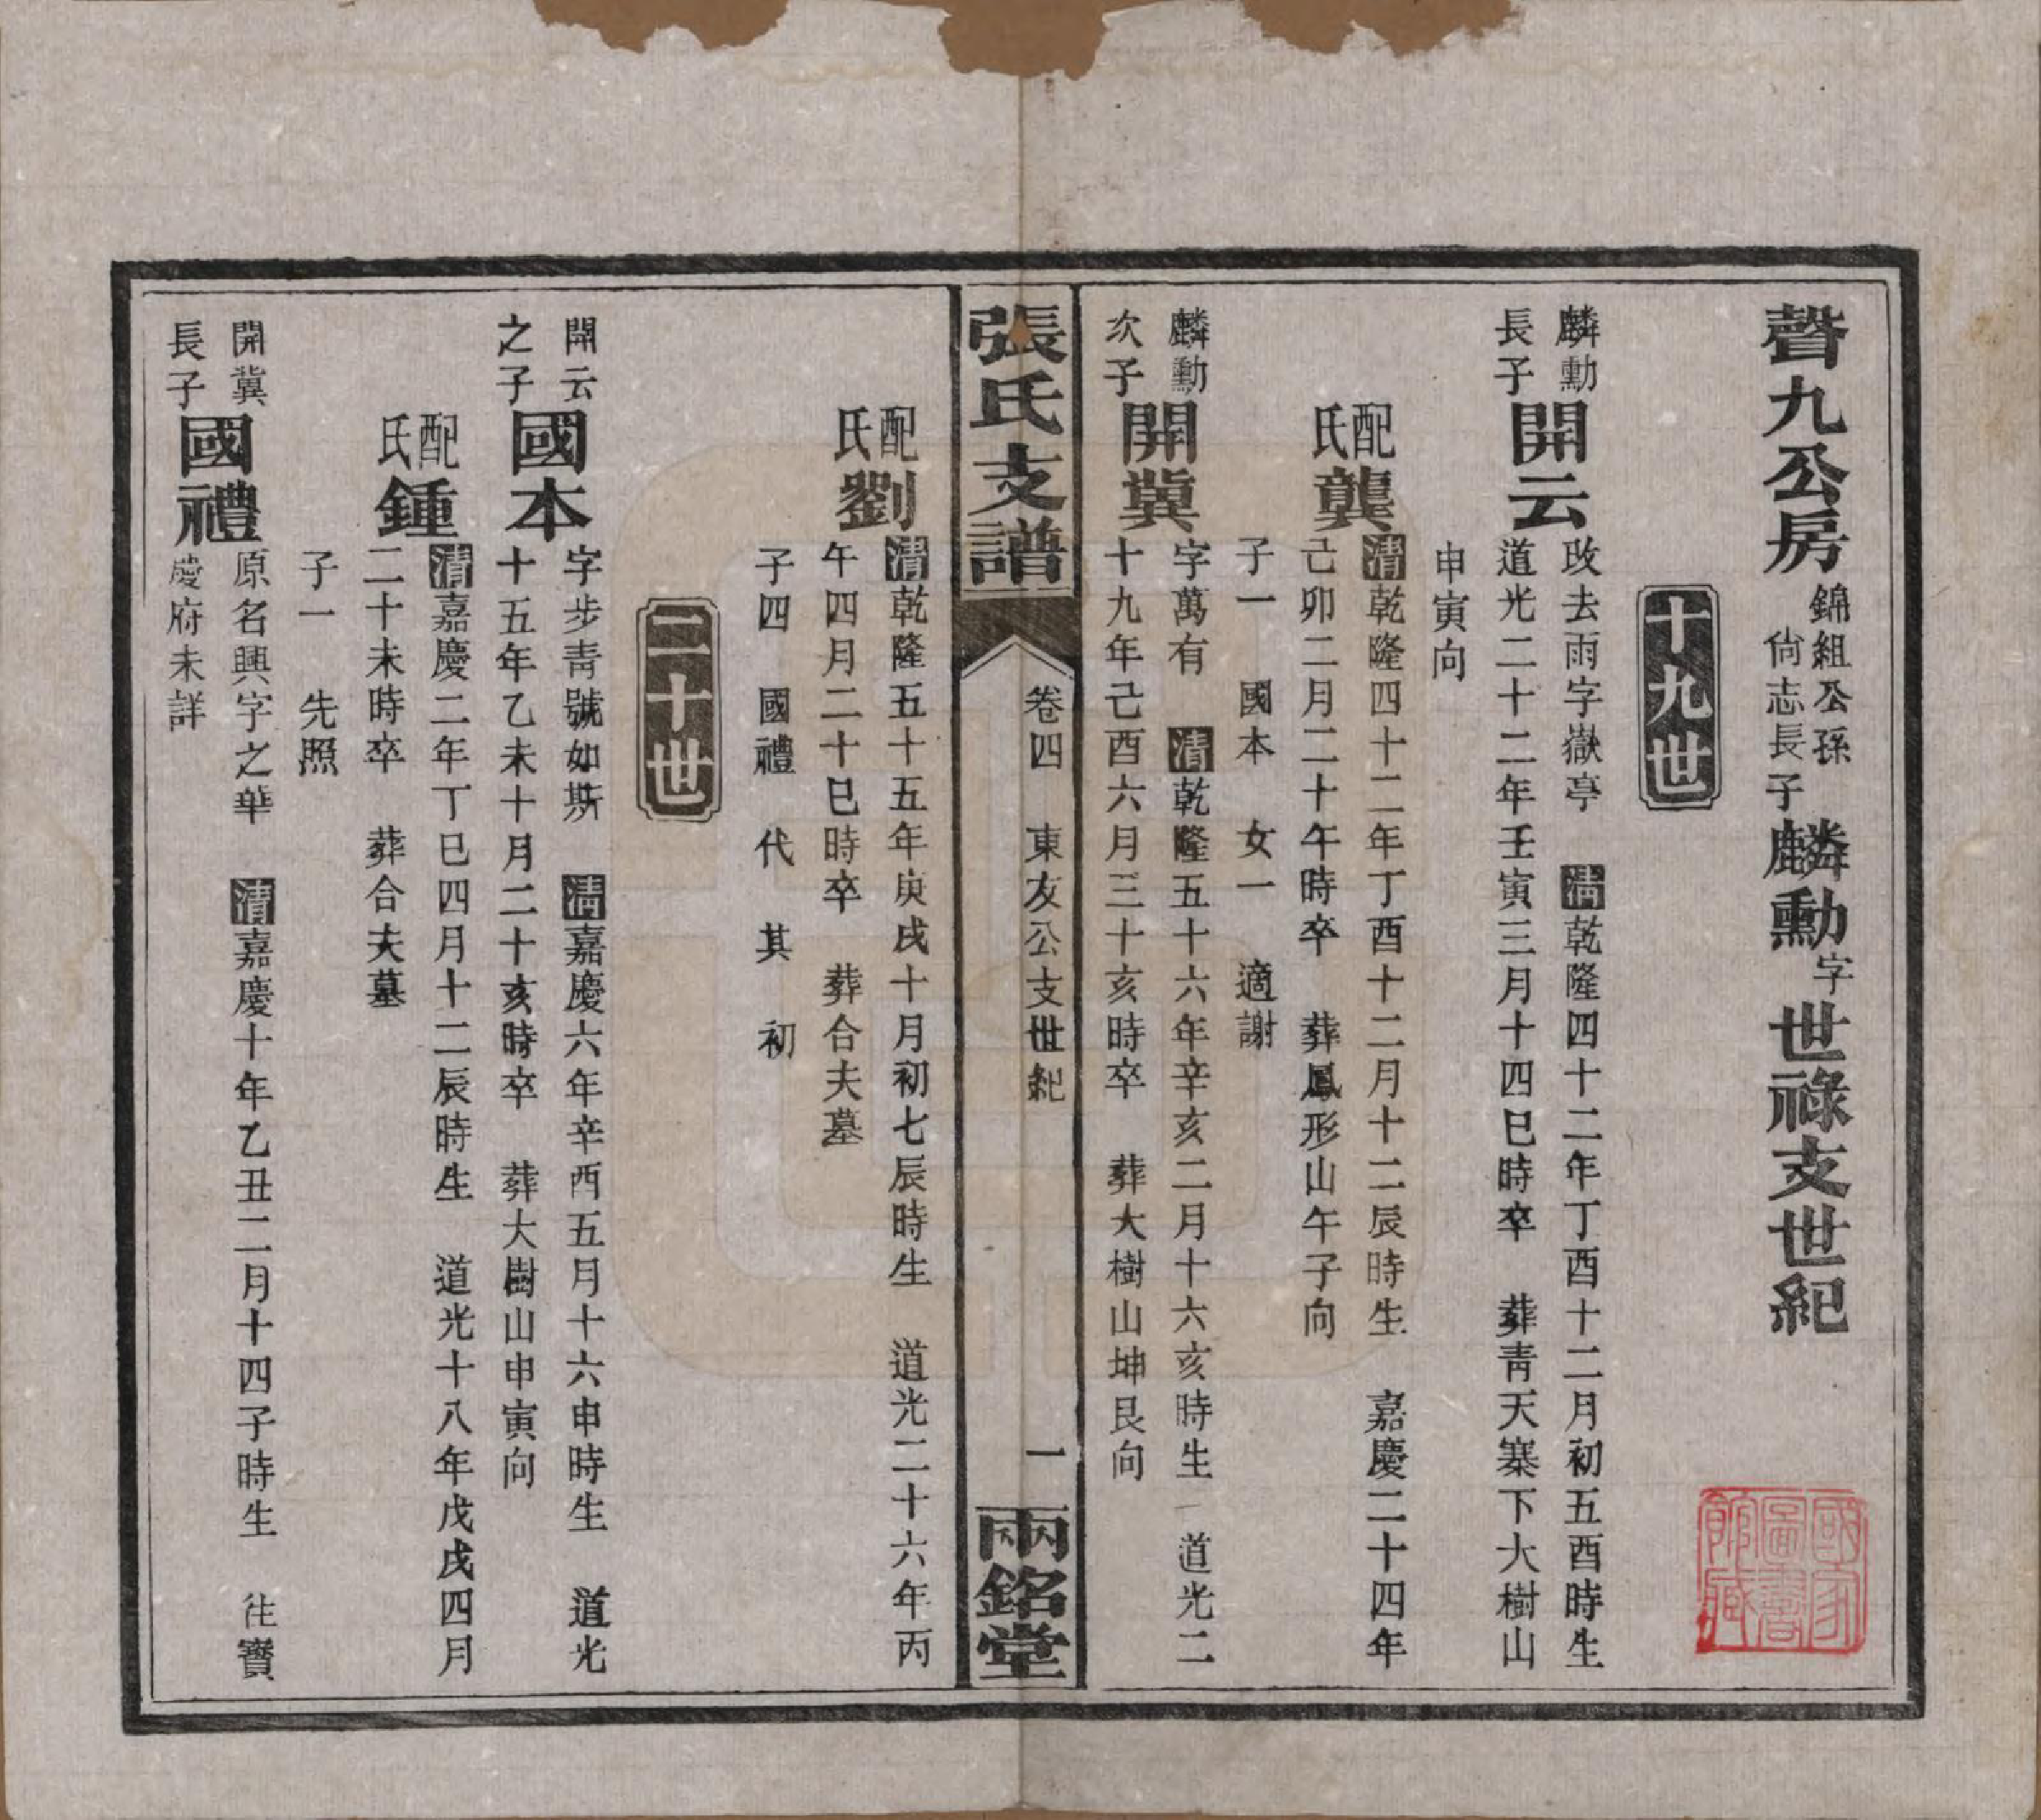 聲九公房
錦組公孫
尙志長子
麟勳字世祿支世紀
十九世
麟勳
長子
開云
改去雨字嶽亭 清乾隆四十二年丁酉十二月初五酉時生
道光二十二年壬寅三月十四巳時卒 葬靑天寨下大樹山
申寅向
配
氏
龔
清乾隆四十二年丁酉十二月十二辰時生 嘉慶二十四年
己卯二月二十午時卒 葬鳳形山午子向
子一 國本 女一 適謝
麟勳
次子
開冀
字萬有 清乾隆五十六年辛亥二月十六亥時生 道光二
十九年己酉六月三十亥時卒 葬大樹山坤艮向
張氏支譜
卷四 東友公支世紀
一
兩銘堂
配
氏
劉
清乾隆五十五年庚戌十月初七辰時生 道光二十六年丙
午四月二十巳時卒 葬合夫墓
子四 國禮 代 其 初
二十世
開云
之子
國本
字步靑號如斯 清嘉慶六年辛酉五月十六申時生 道光
十五年乙未十月二十亥時卒 葬大樹山申寅向
配
氏
鍾
清嘉慶二年丁巳四月十二辰時生 道光十八年戊戌四月
二十未時卒 葬合夫墓
子一 先照
開冀
長子
國禮
原名興字之華 清嘉慶十年乙丑二月十四子時生 往寶
慶府未詳
國家
圖書
館藏